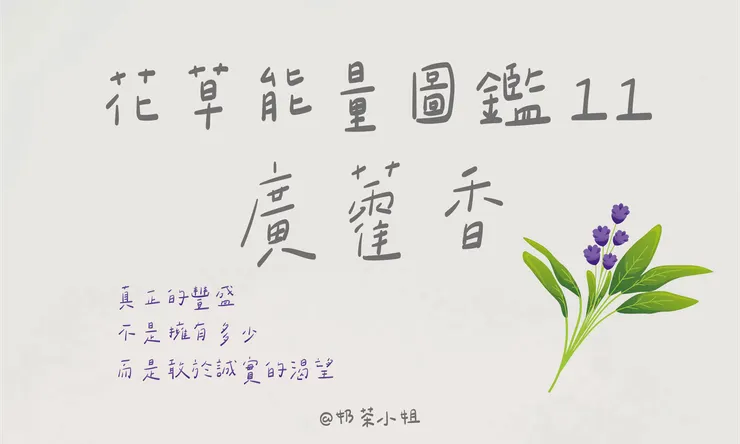 花草能量圖鑑11
廣藿香
真正的豐盛
不是擁有多少
而是敢於誠實的渴望
@奶茶小姐